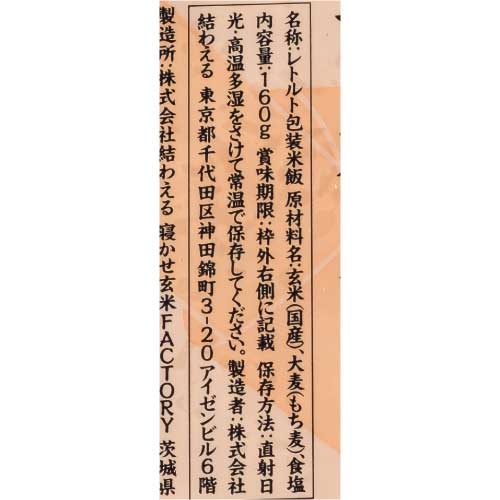 名称:レトルト包装米飯 原材料名:玄米(国産)、大麦(もち麦)、食塩
内容量:160g 賞味期限:枠外右側に記載 保存方法:直射日
光・高温多湿をさけて常温で保存してください。製造者:株式会社
結わえる 東京都千代田区神田錦町3-20アイゼンビル6階
製造所:株式会社結わえる 寝かせ玄米FACTORY 茨城県